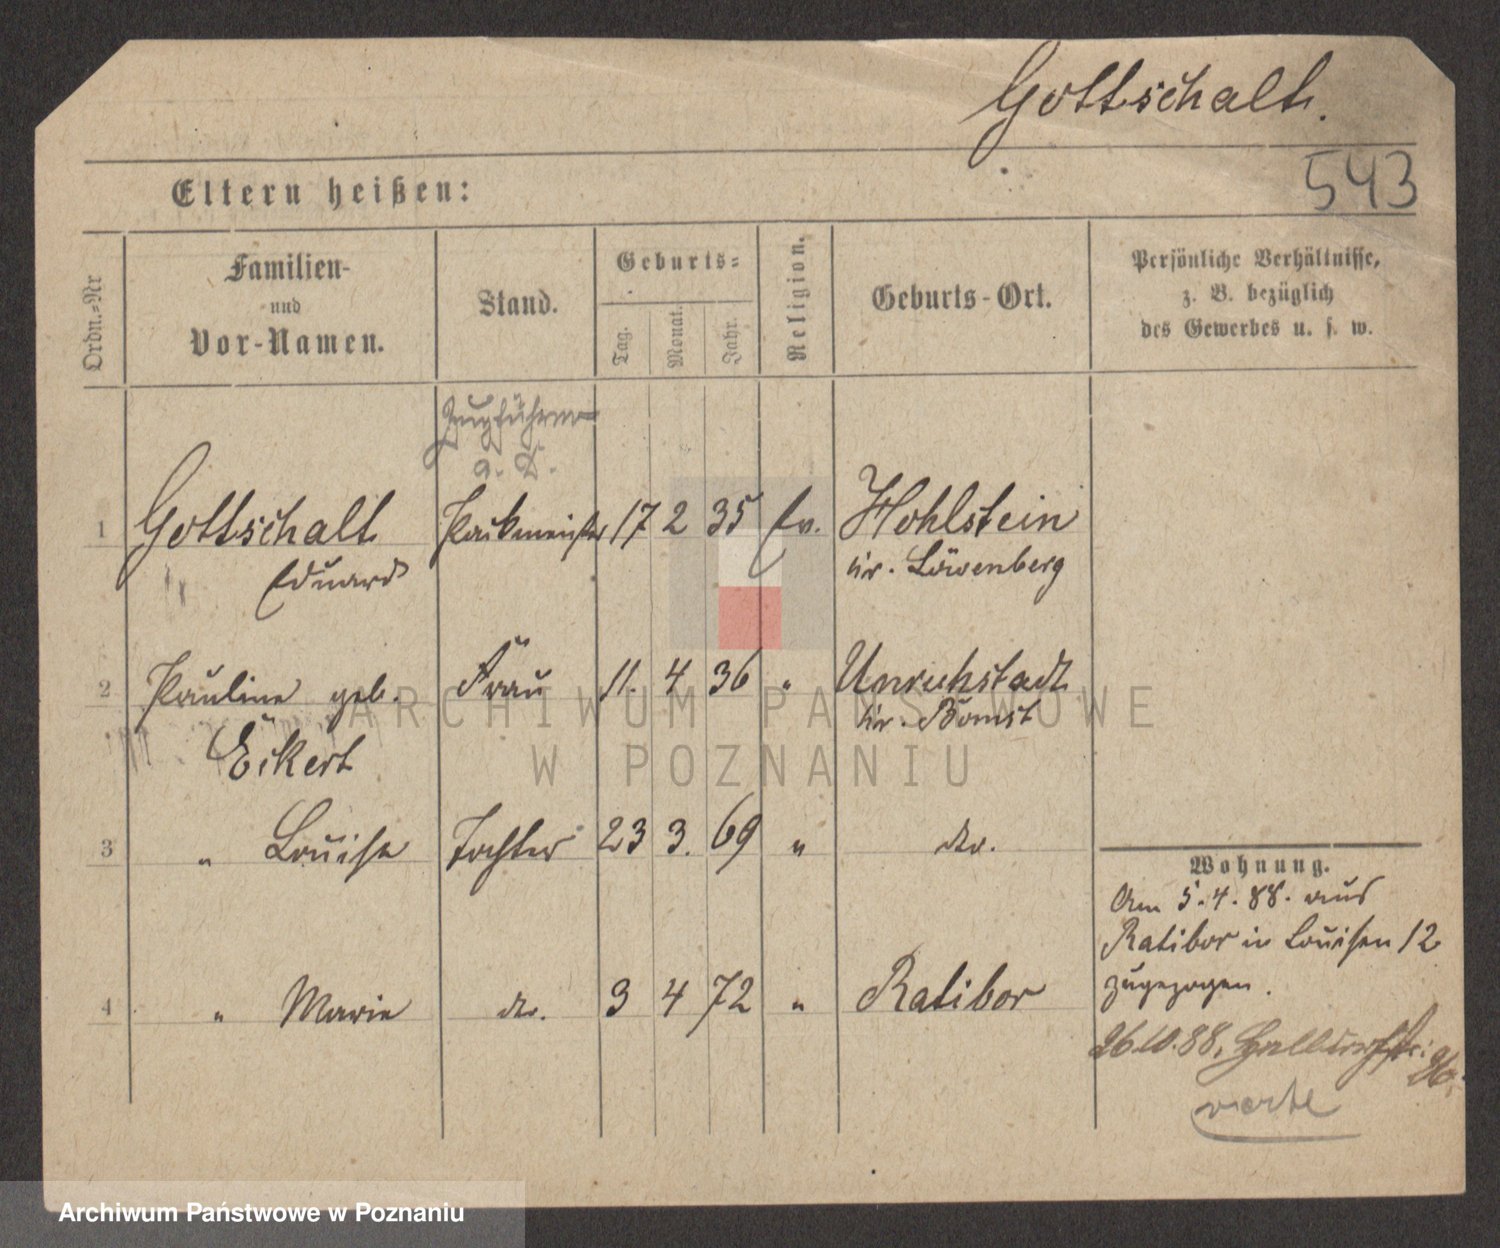 Gottschalk.
543
Eltern heißen:
Ordn.-Nr
Familien-
und
Vor-Namen.
Stand.
Geburts-
Tag.
Monat.
Jahr.
Religion.
Geburts-Ort.
Persönliche Verhältnisse,
z. B. bezüglich
des Gewerbes u. s. w.
Zugführer
a. D.
1 Gottschalk Packmeister 17 2 35 Ev. Hohlstein
Eduard Kr. Löwenberg
2 Pauline geb. Frau 11. 4 36 " Unruhstadt
Kr. Bomst
Eckert
3 " Louise Tochter 23 3. 69 " do.
4 " Marie do. 3 4 72 " Ratibor
Wohnung.
Am 5.4.88. aus
Ratibor in Louisen 12
zugezogen.
26.10.88. 26.
verte
ARCHIWUM PAŃSTWOWE
W POZNANIU
Archiwum Państwowe w Poznaniu